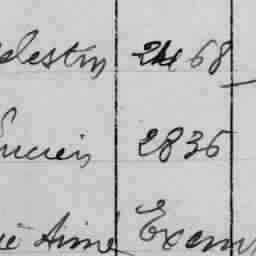 elestin 2468
Lucien 2836
ie Aimé Exem